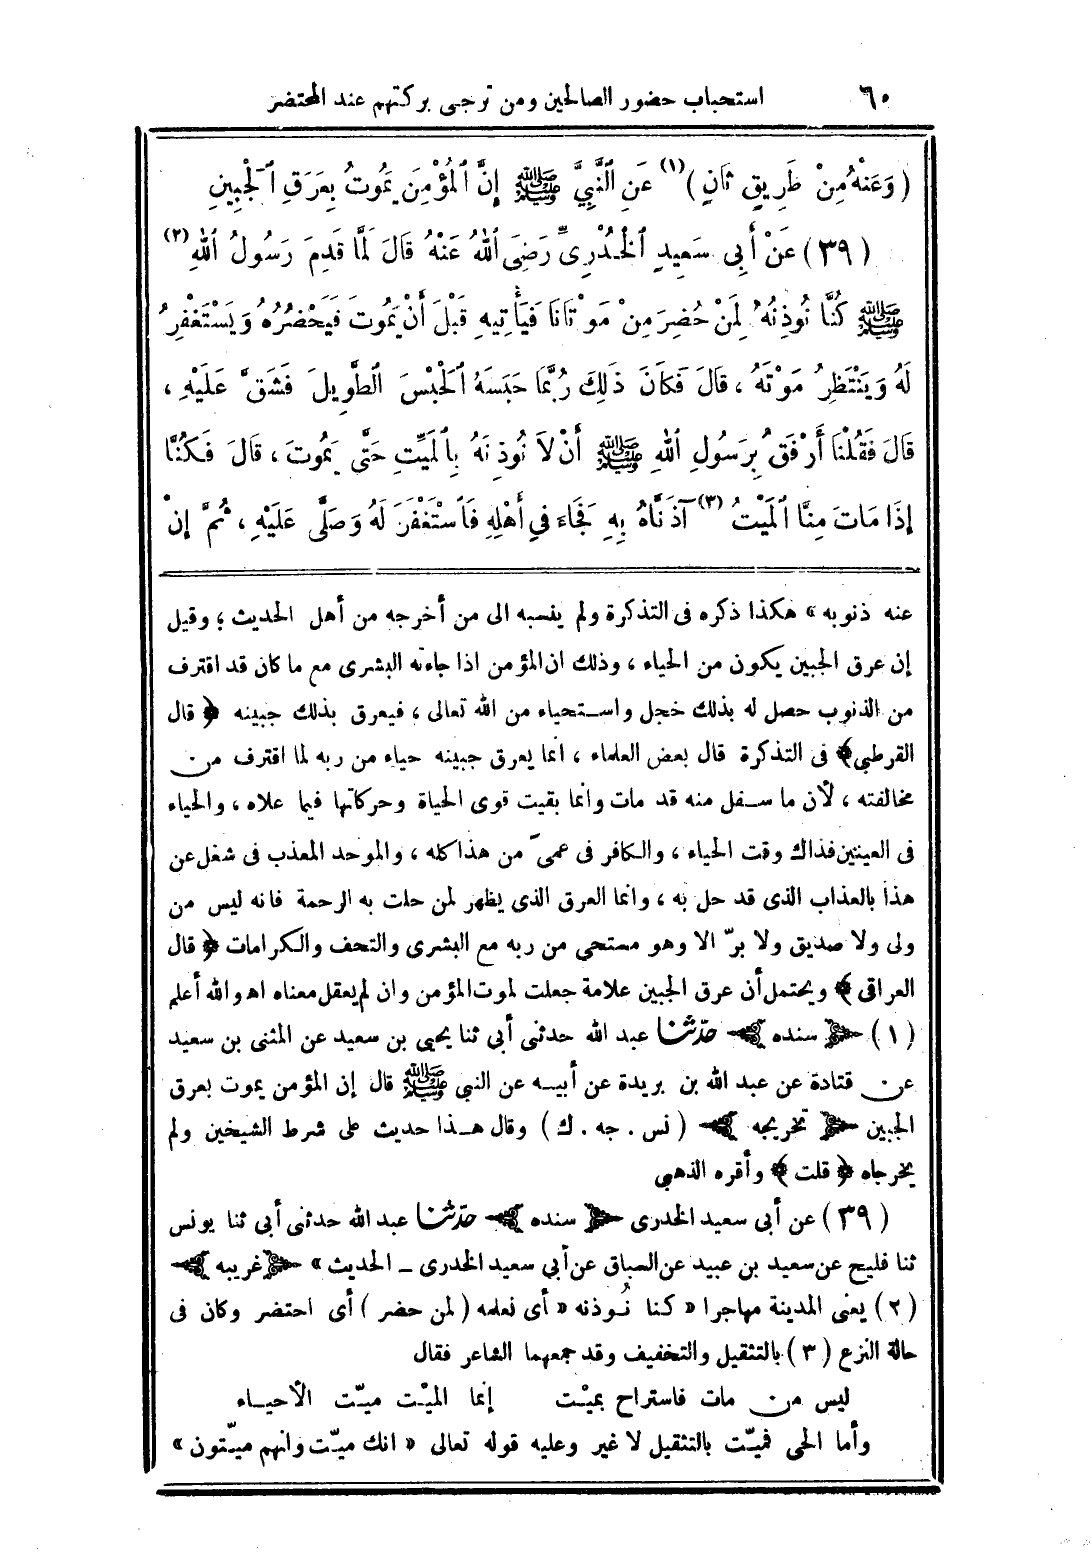 ٦٠ استحباب حضور الصالحين ومن ترجى بركتهم عند المحتضر
( وَعَنْهُ مِنْ طَرِيقٍ ثَانٍ )(١) عَنِ ٱلنَّبِيِّ ﷺ إِنَّ ٱلْمُؤْمِنَ يَمُوتُ بِعَرَقِ ٱلْجَبِينِ
( ٣٩ ) عَنْ أَبِى سَعِيدٍ ٱلْخُدْرِىِّ رَضِىَ ٱللهُ عَنْهُ قَالَ لَمَّا قَدِمَ رَسُولُ ٱللهِ (٢)
ﷺ كُنَّا نُوذِنُهُ لِمَنْ حُضِرَ مِنْ مَوْتَانَا فَيَأْتِيهِ قَبْلَ أَنْ يَمُوتَ فَيَحْضُرُهُ وَيَسْتَغْفِرُ
لَهُ وَيَنْتَظِرُ مَوْتَهُ ، قَالَ فَكَانَ ذَلِكَ رُبَّمَا حَبَسَهُ ٱلْحَبْسَ ٱلطَّوِيلَ فَشَقَّ عَلَيْهِ ،
قَالَ فَقُلْنَا أَرْفَقُ بِرَسُولِ ٱللهِ ﷺ أَنْ لاَ نُوذِنَهُ بِٱلْمَيِّتِ حَتَّى يَمُوتَ ، قَالَ فَكُنَّا
إِذَا مَاتَ مِنَّا ٱلْمَيْتُ (٣) آذَنَّاهُ بِهِ فَجَاءَ فِي أَهْلِهِ فَٱسْتَغْفَرَ لَهُ وَصَلَّى عَلَيْهِ ، ثُمَّ إِنْ
عنه ذنوبه » هكذا ذكره فى التذكرة ولم ينسبه الى من أخرجه من أهل الحديث ؛ وقيل
إن عرق الجبين يكون من الحياء ، وذلك ان المؤمن اذا جاءته البشرى مع ما كان قد اقترف
من الذنوب حصل له بذلك خجل واستحياء من الله تعالى ، فيعرق بذلك جبينه ﴿ قال
القرطبى ﴾ فى التذكرة قال بعض العلماء ، انما يعرق جبينه حياء من ربه لما اقترف من
مخالفته ، لأن ما سفل منه قد مات وانما بقيت قوى الحياة وحركاتها فيما علاه ، والحياء
فى العينين فذاك وقت الحياء ، والكافر فى عمىً من هذا كله ، والموحد المعذب فى شغل عن
هذا بالعذاب الذى قد حل به ، وانما العرق الذى يظهر لمن حلت به الرحمة فانه ليس من
ولى ولا صديق ولا برّ الا وهو مستحى من ربه مع البشرى والتحف والكرامات ﴿ قال
العراقى ﴾ ويحتمل أن عرق الجبين علامة جعلت لموت المؤمن وان لم يعقل معناه اه والله أعلم
( ١ ) سنده حدّثنا عبد الله حدثنى أبي ثنا يحيى بن سعيد عن المثنى بن سعيد
عن قتادة عن عبد الله بن بريدة عن أبيه عن النبي ﷺ قال إن المؤمن يموت بعرق
الجبين تخريجه ( نس . جه . ك ) وقال هذا حديث على شرط الشيخين ولم
يخرجاه ﴿ قلت ﴾ وأقره الذهبي
( ٣٩ ) عن أبي سعيد الخدرى سنده حدّثنا عبد الله حدثنى أبى ثنا يونس
ثنا فليح عن سعيد بن عبيد عن السباق عن أبي سعيد الخدرى ــ الحديث » غريبه
( ٢ ) يعنى المدينة مهاجرا « كنا نُوذنه « أى نعلمه ( لمن حضر ) أى احتضر وكان فى
حالة النزع ( ٣ ) بالتثقيل والتخفيف وقد جمعهما الشاعر فقال
ليس من مات فاستراح بميْت إنما الميْت ميّت الأحياء
وأما الحى فميّت بالتثقيل لا غير وعليه قوله تعالى « انك ميّت وانهم ميّتون »